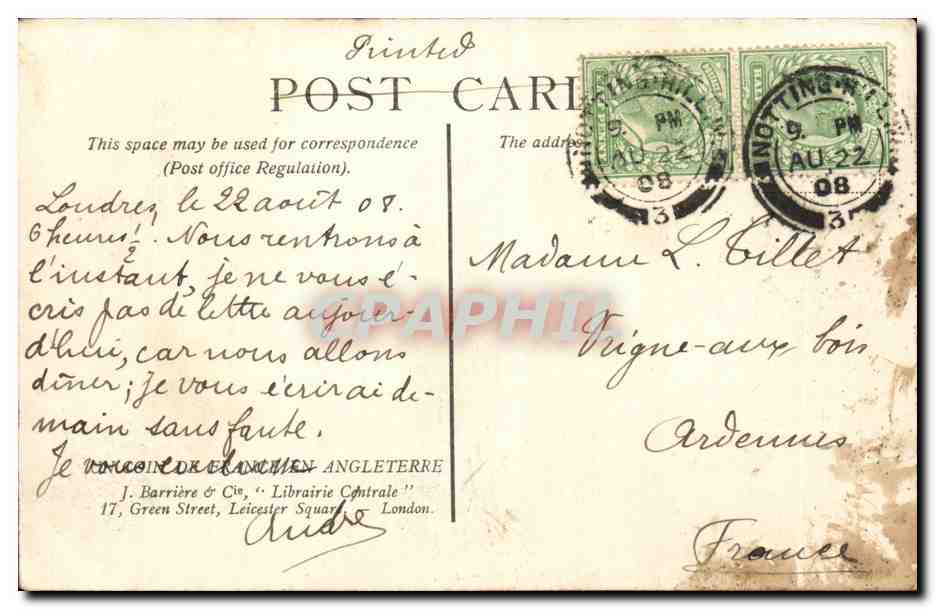 Printed
POST CARD
This space may be used for correspondence
(Post office Regulation).
The address
NOTTING·HILL·W
9. PM
AU 22
08
3
NOTTING·HILL·W
9. PM
AU 22
08
3
Londres, le 22 août 08.
6 heures ½. Nous rentrons à
l'instant, je ne vous é-
cris pas de lettre aujour-
d'hui, car nous allons
dîner; je vous écrirai de-
main sans faute.
Je vous embrasse
ANGLETERRE
J. Barrière & Cie, " Librairie Centrale "
17, Green Street, Leicester Square, London.
André
Madame L. Tillet
Vrigne-aux bois
Ardennes
France
CPAPHIL